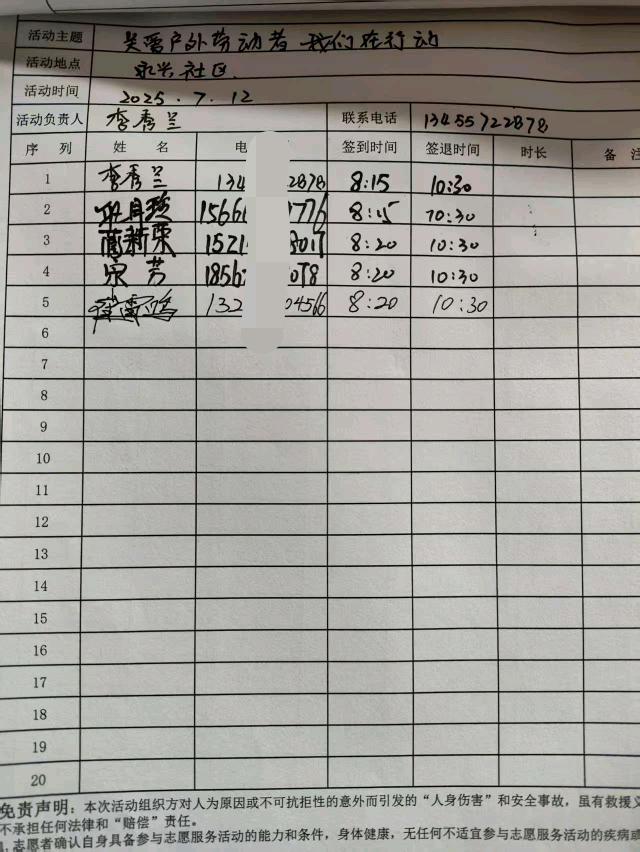 活动主题 关爱户外劳动者 我们在行动
活动地点 永兴社区
活动时间 2025.7.12
活动负责人 李秀兰 联系电话 13455722878
序 列 姓 名 电 签到时间 签退时间 时长 备 注
1 李秀兰 134 2878 8:15 10:30
2 1566 1776 8:15 10:30
3 高新荣 1521 8017 8:20 10:30
4 宋芳 1856 078 8:20 10:30
5 132 04566 8:20 10:30
6
7
8
9
10
11
12
13
14
15
16
17
18
19
20
免责声明:本次活动组织方对人为原因或不可抗拒性的意外而引发的“人身伤害”和安全事故,虽有救援义
不承担任何法律和“赔偿”责任。
志愿者确认自身具备参与志愿服务活动的能力和条件,身体健康,无任何不适宜参与志愿服务活动的疾病或